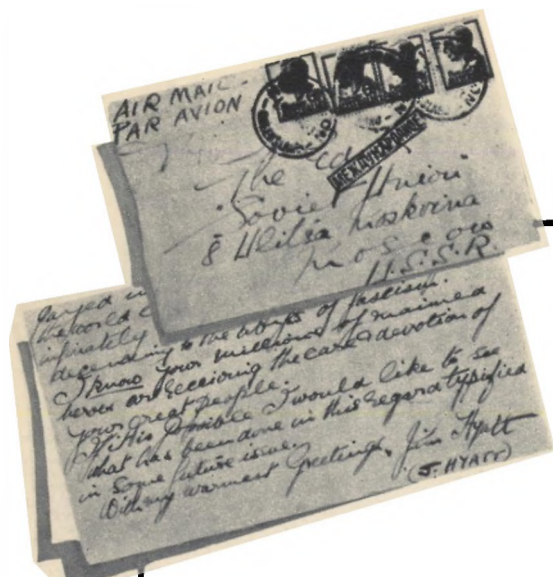 AIR MAIL -
PAR AVION
The
Soviet Union
8 Ulitsa Moskvina
Moscow
U.S.S.R.
the world
infinitely
to the of fascism.
I know your millions of maimed
heroes are receiving the care & devotion of
your great people.
If it is possible I would like to see
what has been done in this regard typified
in some future issue.
With my warmest greetings, Jim Hyatt
(J. HYATT)